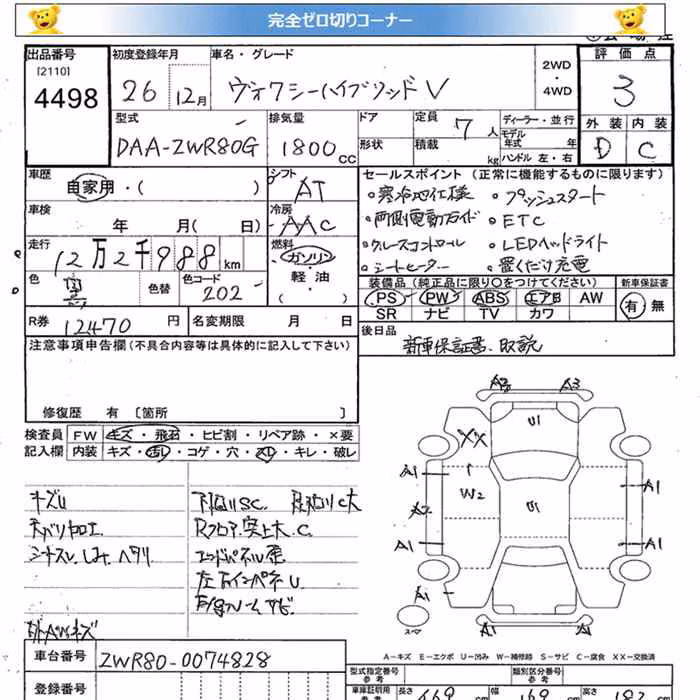 完全ゼロ切りコーナー
出品番号 初度登録年月 車名・グレード 2WD 評価点
[2110]
4498 26 12月 ヴォクシーハイブリッドV ・4WD 3
型式 排気量 ドア 定員 ディーラー・並行 外装 内装
DAA-ZWR80G 1800cc 7人 モデル年式 年式 D C
形状 積載 kg ハンドル 左・右
車歴 シフト セールスポイント(正常に機能するものに限ります)
自家用・( ) AT ・寒冷地仕様 ・プッシュスタート
車検 年 月(日) 冷房 AAC ・両側電動スライド ・ETC
走行 12万2千988km 燃料 ガソリン ・クルーズコントロール ・LEDヘッドライト
色 色替 色コード 202 軽・油 ・シートヒーター ・置くだけ充電
・( )
装備品(純正品に限り○をつけてください) 新車保証書
PS PW ABS エアB AW 有・無
R券 12470円 名変期限 月 日 SR ナビ TV カワ
後日品
新車保証書.取説
注意事項申告欄(不具合内容等は具体的に記入して下さい)
修復歴 有 〔箇所 〕
検査員 FW キズ・飛石・ヒビ割・リペア跡・×要
記入欄 内装 キズ・汚れ・コゲ・穴・スレ・キレ・破レ
A3 A3
U1
XX
A1 W2 U1 A1
A2
A1 A1
A1
A1 A1
スマ
キズU 下回りSC.
天バリ加工 Rフロア突上大.C.
シートスレ.しみ.ヘタリ エンドパネル歪
左右インパネU
A-キズ E-エクボ U-凹み W-補修跡 S-サビ C-腐食 XX-交換済
車台番号 ZWR80-0074828
型式指定番号 参考 類別区分番号 参考
登録番号 車庫証明用 参考 長さ 469 cm 幅 169 cm 高さ